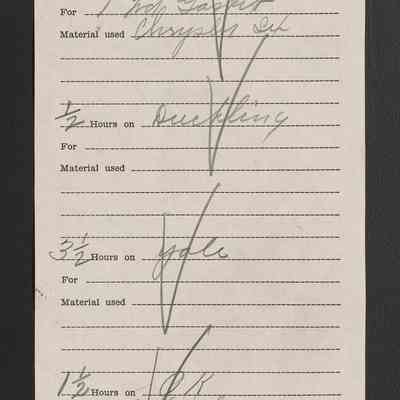 For 1 Hd. Gasket
Material used Chrysler Six
1/2 Hours on Duckling
For
Material used
3 1/2 Hours on Yale
For
Material used
1 1/2 Hours on O.K.